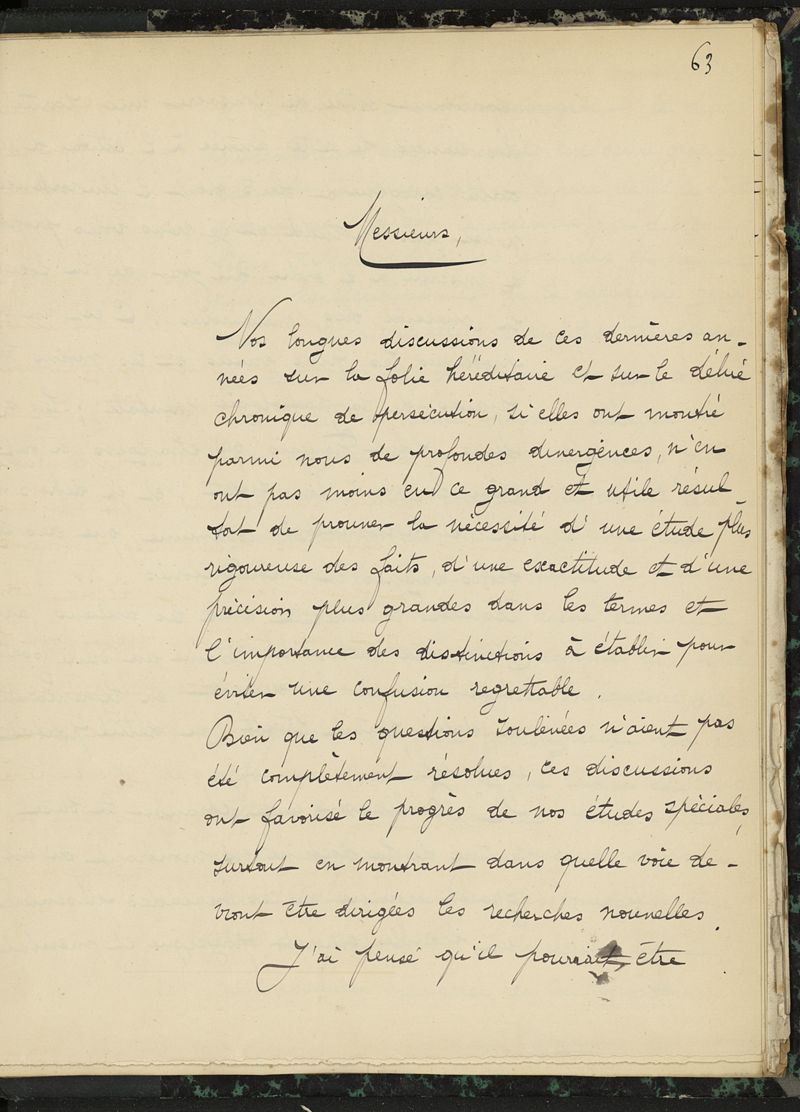 63
Messieurs,
Nos longues discussions de ces dernières an-
nées sur la folie héréditaire et sur le délire
chronique de persécution, si elles ont montré
parmi nous de profondes divergences, n'en
ont pas moins eu ce grand et utile résul-
tat de prouver la nécessité d'une étude plus
rigoureuse des faits, d'une exactitude et d'une
précision plus grandes dans les termes et
l'importance des distinctions à établir pour
éviter une confusion regrettable.
Bien que les questions soulevées n'aient pas
été complètement résolues, ces discussions
ont favorisé le progrès de nos études spéciales,
surtout en montrant dans quelle voie de-
vront être dirigées les recherches nouvelles.
J'ai pensé qu'il pourrait être